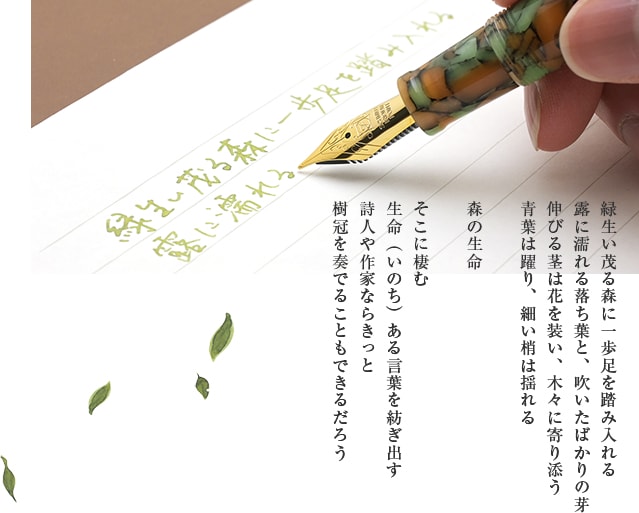 緑生い茂る森に一歩足を踏み入れる
露に濡れる
緑生い茂る森に一歩足を踏み入れる
露に濡れる落ち葉と、吹いたばかりの芽
伸びる茎は花を装い、木々に寄り添う
青葉は躍り、細い梢は揺れる
森の生命
そこに棲む
生命（いのち）ある言葉を紡ぎ出す
詩人や作家ならきっと
樹冠を奏でることもできるだろう